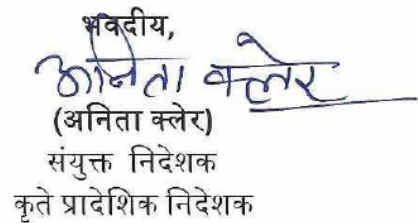 भवदीय,
अनिता क्लेर
(अनिता क्लेर)
संयुक्त निदेशक
कृते प्रादेशिक निदेशक